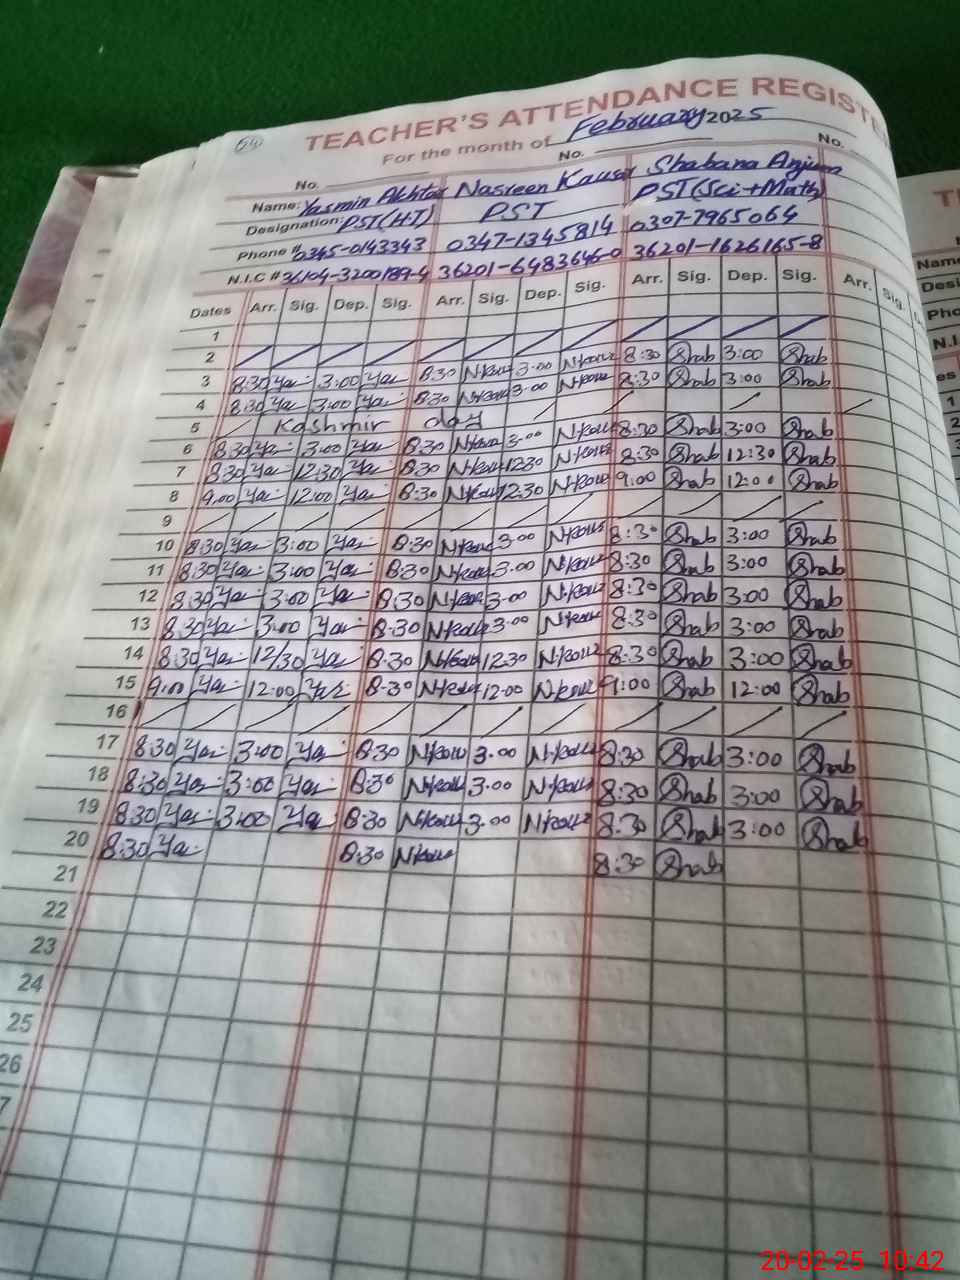 TEACHER'S ATTENDANCE REGISTE
For the month of February 2025
No. No. No.
Name: Yasmin Akhtar Nasreen Kausar Shabana Anjum
Designation: PST(H.T) PST PST(Sci+Math)
Phone # 0345-0143343 0347-1345814 0307-7965064
N.I.C # 36104-3200189-4 36201-6483646-0 36201-1626165-8
Dates Arr. Sig. Dep. Sig. Arr. Sig. Dep. Sig. Arr. Sig. Dep. Sig. Arr. Sig.
1
2
3 8:30 Yas 3:00 Yas 8:30 N.kour 3.00 N.kour 8:30 Shab 3:00 Shab
4 8:30 Yas 3:00 Yas 8:30 N.kour 3.00 N.kour 8:30 Shab 3:00 Shab
5 Kashmir day
6 8:30 Yas 3:00 Yas 8:30 N.kour 3.00 N.kour 8:30 Shab 3:00 Shab
7 8:30 Yas 12:30 Yas 8:30 N.kour 12.30 N.kour 8:30 Shab 12:30 Shab
8 9.00 Yas 12:00 Yas 8:30 N.kour 12.30 N.kour 9:00 Shab 12:00 Shab
9
10 8:30 Yas 3:00 Yas 8:30 N.kour 3.00 N.kour 8:30 Shab 3:00 Shab
11 8:30 Yas 3:00 Yas 8:30 N.kour 3.00 N.kour 8:30 Shab 3:00 Shab
12 8:30 Yas 3:00 Yas 8:30 N.kour 3.00 N.kour 8:30 Shab 3:00 Shab
13 8:30 Yas 3:00 Yas 8:30 N.kour 3.00 N.kour 8:30 Shab 3:00 Shab
14 8:30 Yas 12/30 Yas 8:30 N.kour 12.30 N.kour 8:30 Shab 3:00 Shab
15 9:00 Yas 12:00 Yas 8:30 N.kour 12.00 N.kour 9:00 Shab 12:00 Shab
16
17 8:30 Yas 3:00 Yas 8:30 N.kour 3.00 N.kour 8:30 Shab 3:00 Shab
18 8:30 Yas 3:00 Yas 8:30 N.kour 3.00 N.kour 8:30 Shab 3:00 Shab
19 8:30 Yas 3:00 Yas 8:30 N.kour 3.00 N.kour 8:30 Shab 3:00 Shab
20 8:30 Yas 8:30 N.kour 8:30 Shab
21
22
23
24
25
26
7
Name
Desi
Pho
N.I.
es
1
2
3
20-02-25 10:42